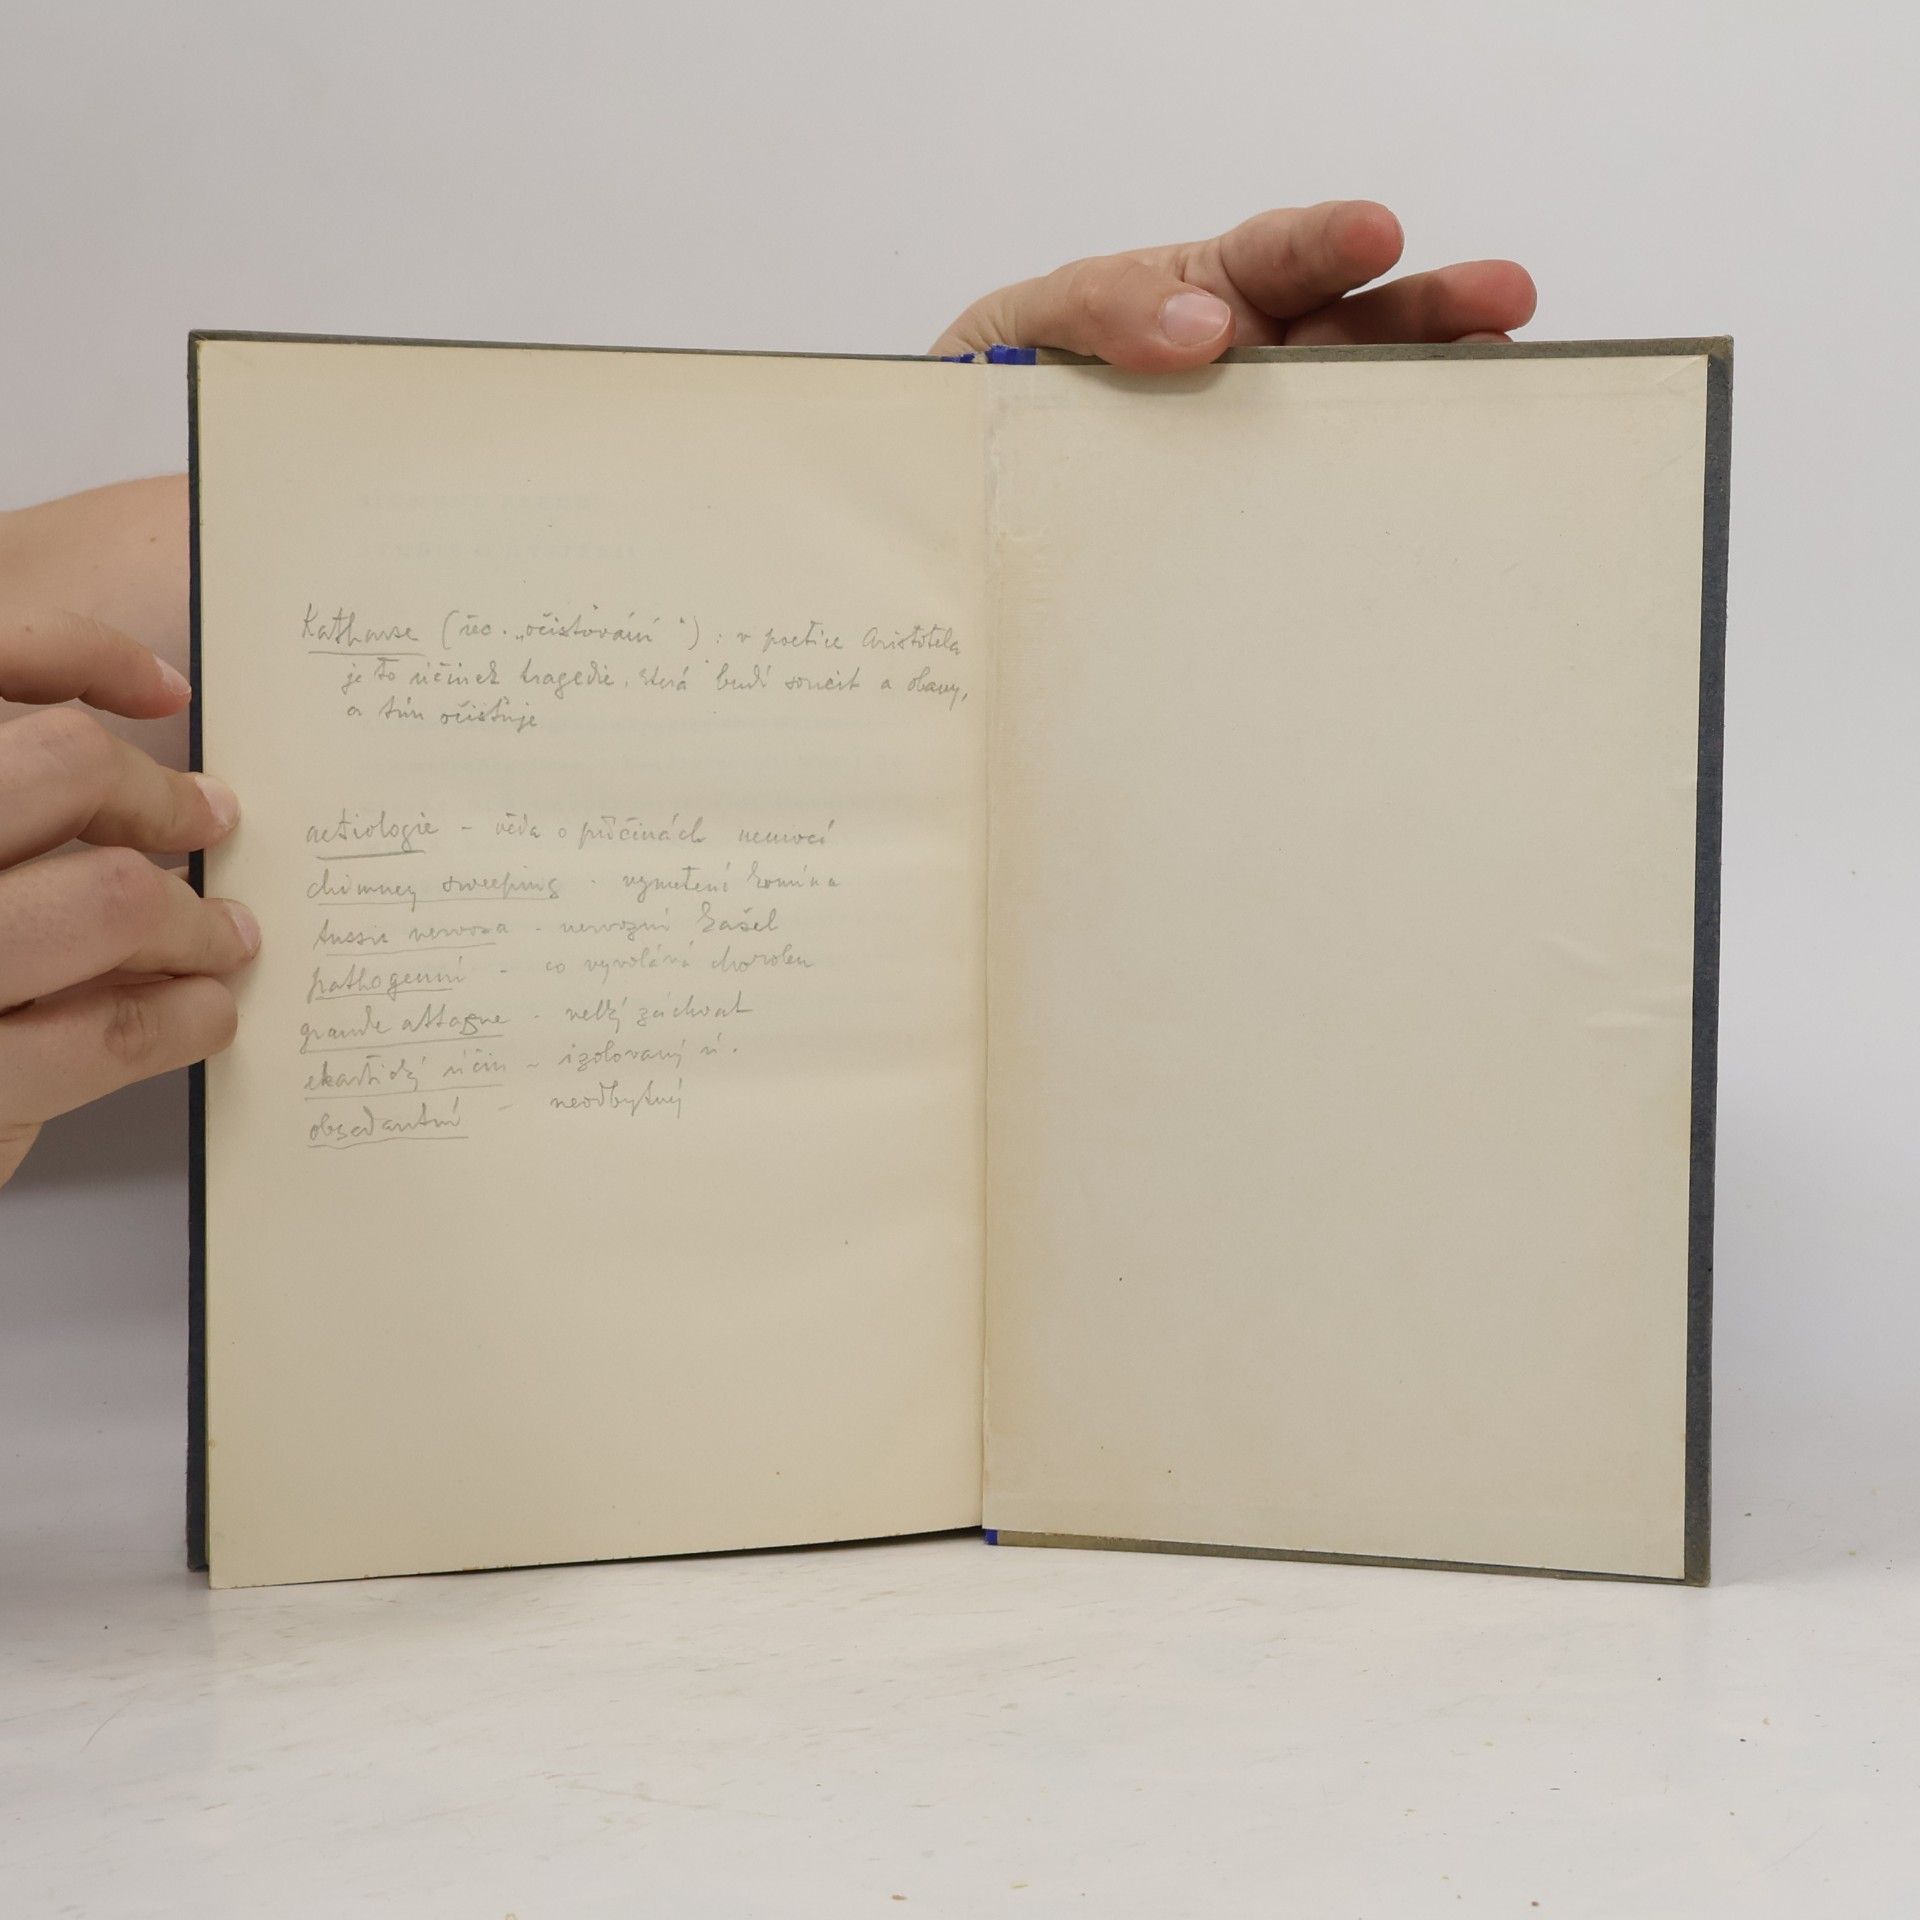 Katharse (řec. „očistování“) : v poetice Aristotela
je to účinek tragedie, která budí soucit a obavy,
a tím očistuje
aetiologie - věda o příčinách nemocí
chimney sweeping - vymetení komína
tussis nervosa - nervozní kašel
pathogenní - co vyvolává chorobu
grande attaque - velký záchvat
účin - izolovaný ú.
obsedantní - neodbytný